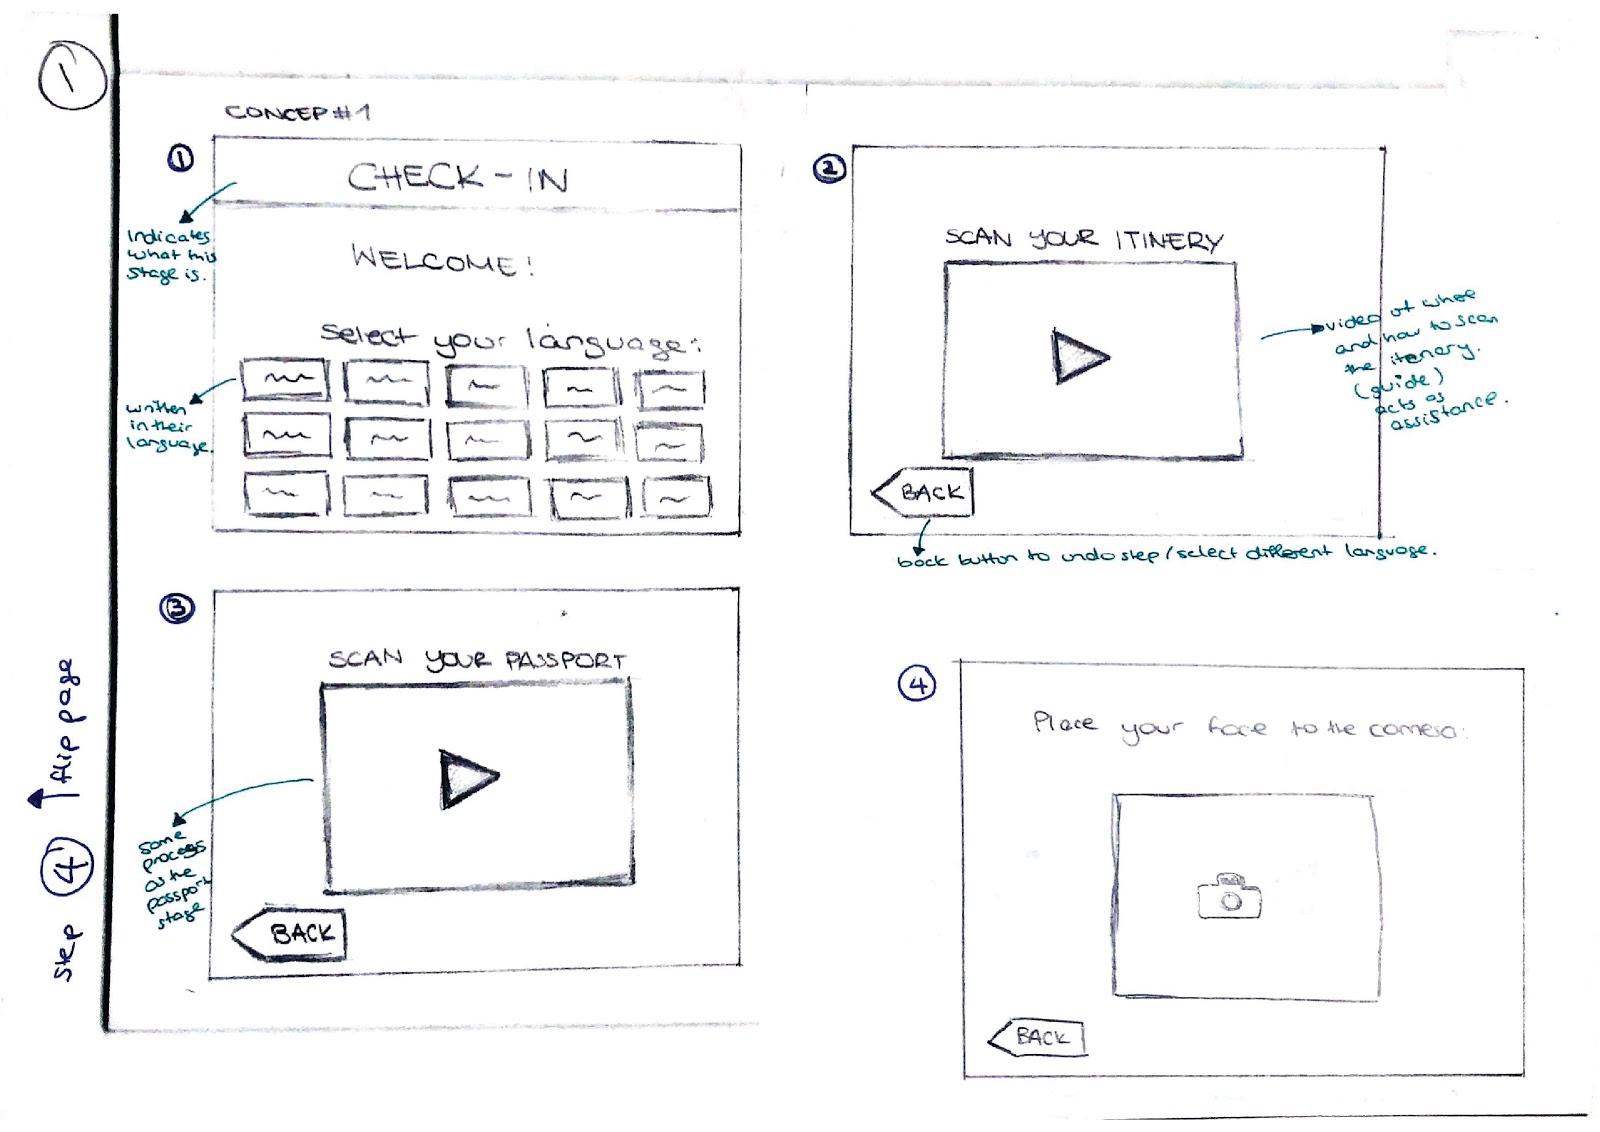 1
CONCEP#1
1
CHECK-IN
Indicates
what this
stage is.
WELCOME!
Select your language:
written
in their
language.
2
SCAN YOUR ITINERY
video of whee
and how to scan
the itenery.
(guide)
acts as
assistance.
BACK
back button to undo step/select different language.
3
SCAN YOUR PASSPORT
same
process
as the
passport
stage
BACK
4
Place your face to the camera:
BACK
step 4 flip page